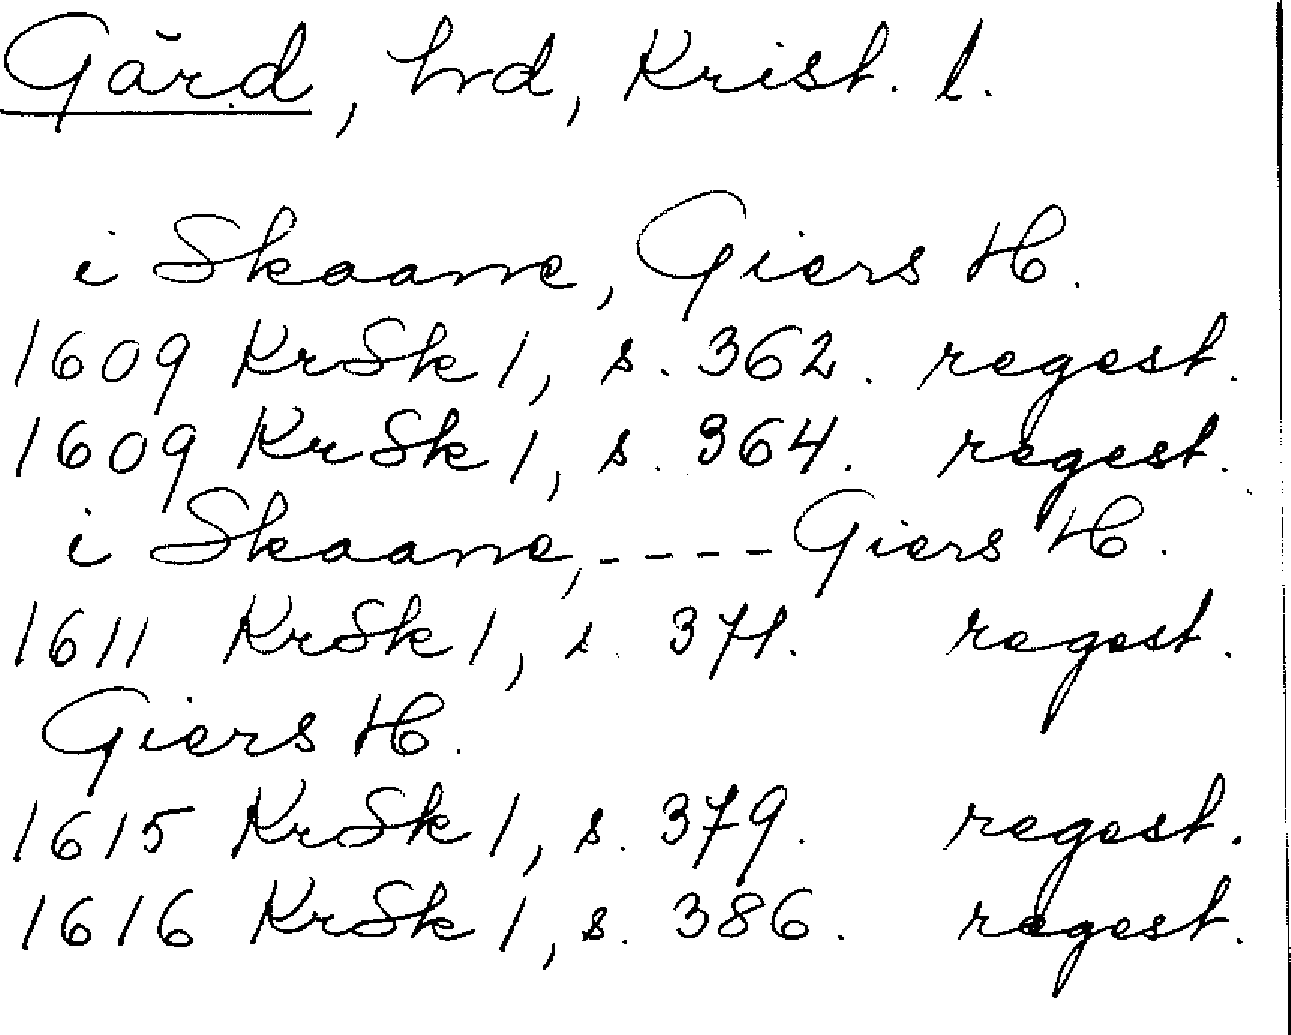 Gärd, hrd, Krist. l.
i Skaane, Giers H.
1609 KrSk 1, s. 362. regest.
1609 KrSk 1, s. 364. regest.
i Skaane, ---- Giers H.
1611 KrSk 1, s. 371. regest.
Giers H.
1615 KrSk 1, s. 379. regest.
1616 KrSk 1, s. 386. regest.